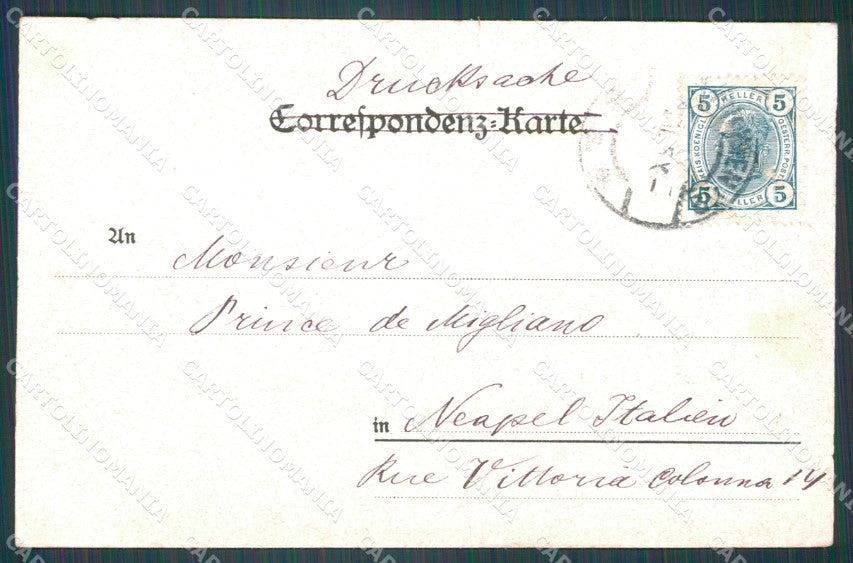 Drucksache
Correspondenz-Karte.
5 HELLER 5
KAIS. KOENIGL. OESTERR. POST
5 HELLER 5
An
Monsieur
Prince de Migliano
in Neapel Italien
Rue Vittoria Colonna 14
CARTOLINOMANIA